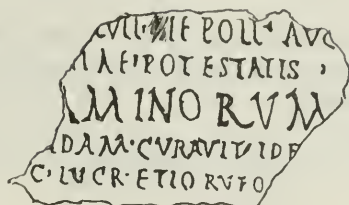 VII · IE POLL · AVG
I AE · POTESTATIS ·
MINORVM
DAM · CVRAVIT · IDE
C · LVCR · ETIO RVFO